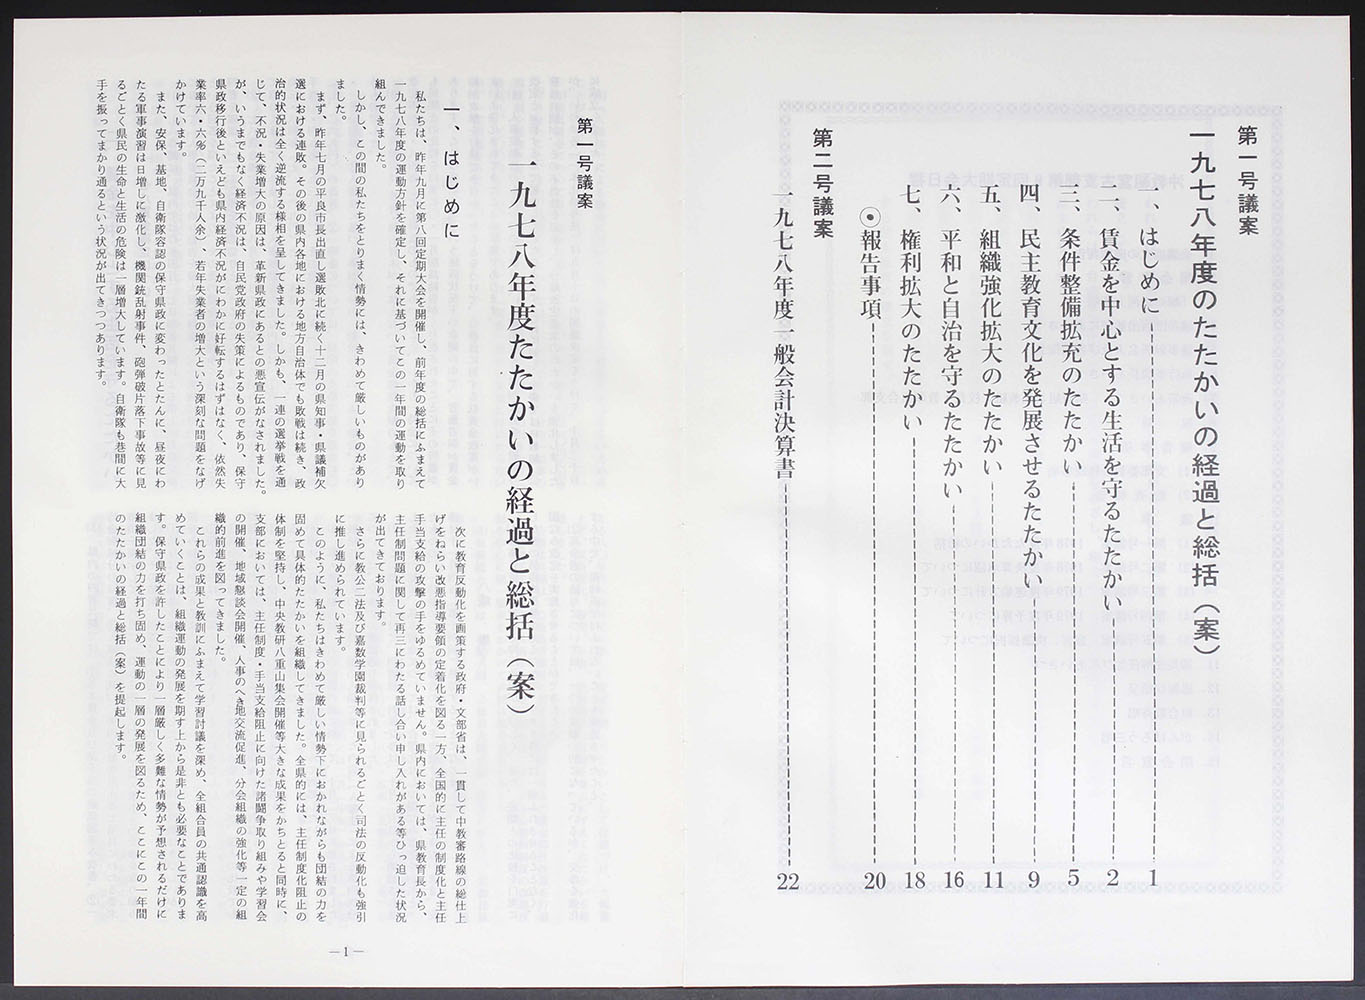 第一号議案
一九七八年度のたたかいの経過と総括（案）
一、はじめに 1
二、賃金を中心とする生活を守るたたかい 2
三、条件整備拡充のたたかい 5
四、民主教育文化を発展させるたたかい 9
五、組織強化拡大のたたかい 11
六、平和と自治を守るたたかい 16
七、権利拡大のたたかい 18
◉報告事項 20
第二号議案
一九七八年度一般会計決算書 22
第一号議案
一九七八年度たたかいの経過と総括（案）
一、はじめに
私たちは、昨年九月に第八回定期大会を開催し、前年度の総括にふまえて
一九七八年度の運動方針を確定し、それに基づいてこの一年間の運動を取り
組んできました。
しかし、この間の私たちをとりまく情勢には、きわめて厳しいものがあり
ました。
まず、昨年七月の平良市長出直し選敗北に続く十二月の県知事・県議補欠
選における連敗。その後の県内各地における地方自治体でも敗戦は続き、政
治的状況は全く逆流する様相を呈してきました。しかも、一連の選挙戦を通
じて、不況・失業増大の原因は、革新県政にあるとの悪宣伝がなされました。
が、いうまでもなく経済不況は、自民党政府の失策によるものであり、保守
県政移行後といえども県内経済不況がにわかに好転するはずはなく、依然失
業率六・六％（二万九千人余）、若年失業者の増大という深刻な問題をなげ
かけています。
また、安保、基地、自衛隊容認の保守県政に変わったとたんに、昼夜にわ
たる軍事演習は日増しに激化し、機関銃乱射事件、砲弾破片落下事故等に見
るごとく県民の生命と生活の危険は一層増大しています。自衛隊も巷間に大
手を振ってまかり通るという状況が出てきつつあります。
次に教育反動化を画策する政府・文部省は、一貫して中教審路線の総仕上
げをねらい改悪指導要領の定着化を図る一方、全国的に主任の制度化と主任
手当支給の攻撃の手をゆるめていません。県内においては、県教育長から、
主任制問題に関して再三にわたる話し合い申し入れがある等ひっ迫した状況
が出てきております。
さらに教公二法及び嘉数学園裁判等に見られるごとく司法の反動化も強引
に推し進められています。
このように、私たちはきわめて厳しい情勢下におかれながらも団結の力を
固めて具体的たたかいを組織してきました。全県的には、主任制度化阻止の
体制を堅持し、中央教研八重山集会開催等大きな成果をかちとると同時に、
支部においては、主任制度・手当支給阻止に向けた諸闘争取り組みや学習会
の開催、地域懇談会開催、人事のへき地交流促進、分会組織の強化等一定の組
織的前進を図ってきました。
これらの成果と教訓にふまえて学習討議を深め、全組合員の共通認識を高
めていくことは、組織運動の発展を期す上から是非とも必要なことでありま
す。保守県政を許したことにより一層厳しく多難な情勢が予想されるだけに
組織団結の力を打ち固め、運動の一層の発展を図るため、ここにこの一年間
のたたかいの経過と総括（案）を提起します。
—1—